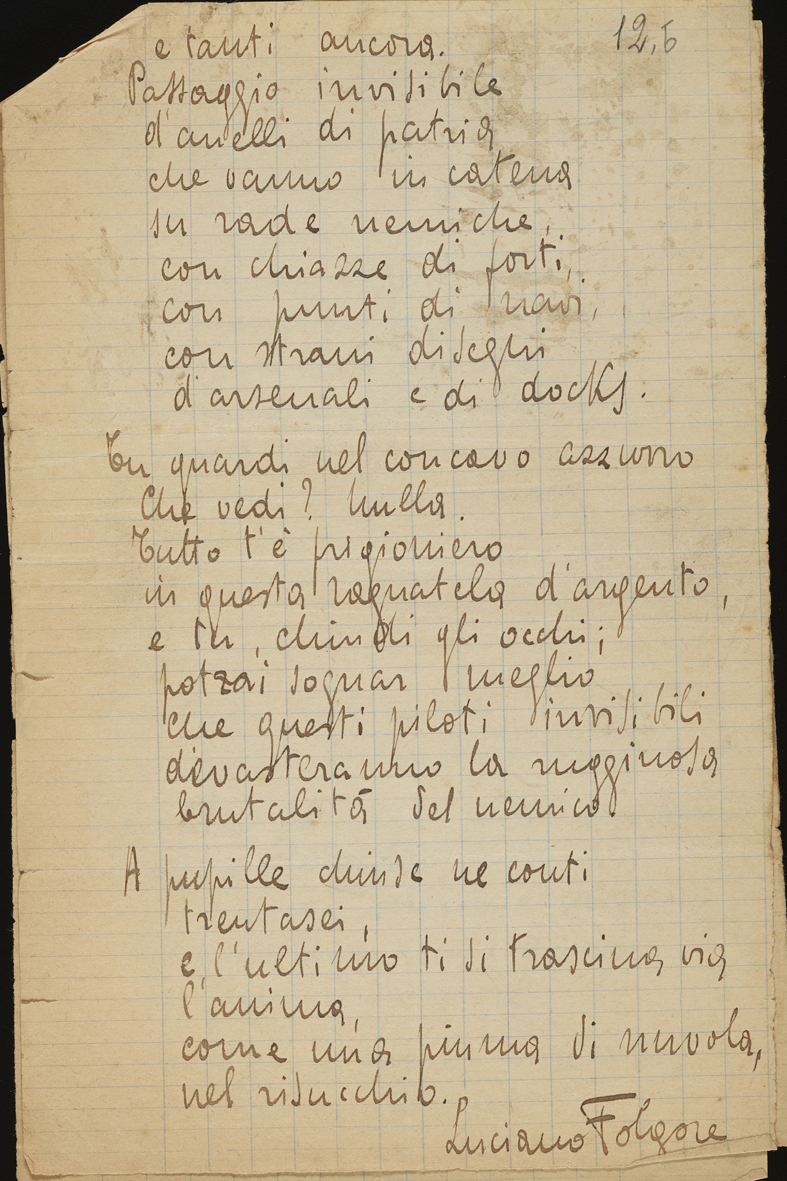 12,5
e tanti ancora.
Passaggio invisibile
d'anelli di patria
che vanno in catena
su rade nemiche,
con chiazze di forti,
con punti di navi,
con strani disegni
d'arsenali e di docks.
Tu guardi nel concavo azzurro
Che vedi? Nulla.
Tutto t'è prigioniero
in questa ragnatela d'argento,
e tu, chiudi gli occhi;
potrai sognar meglio
che questi piloti invisibili
devasteranno la rugginosa
brutalità del nemico.
A pupille chiuse ne conti
trentasei,
e l'ultimo ti si trascina via
l'anima,
come una piuma di nuvola,
nel risucchio.
Luciano Folgore